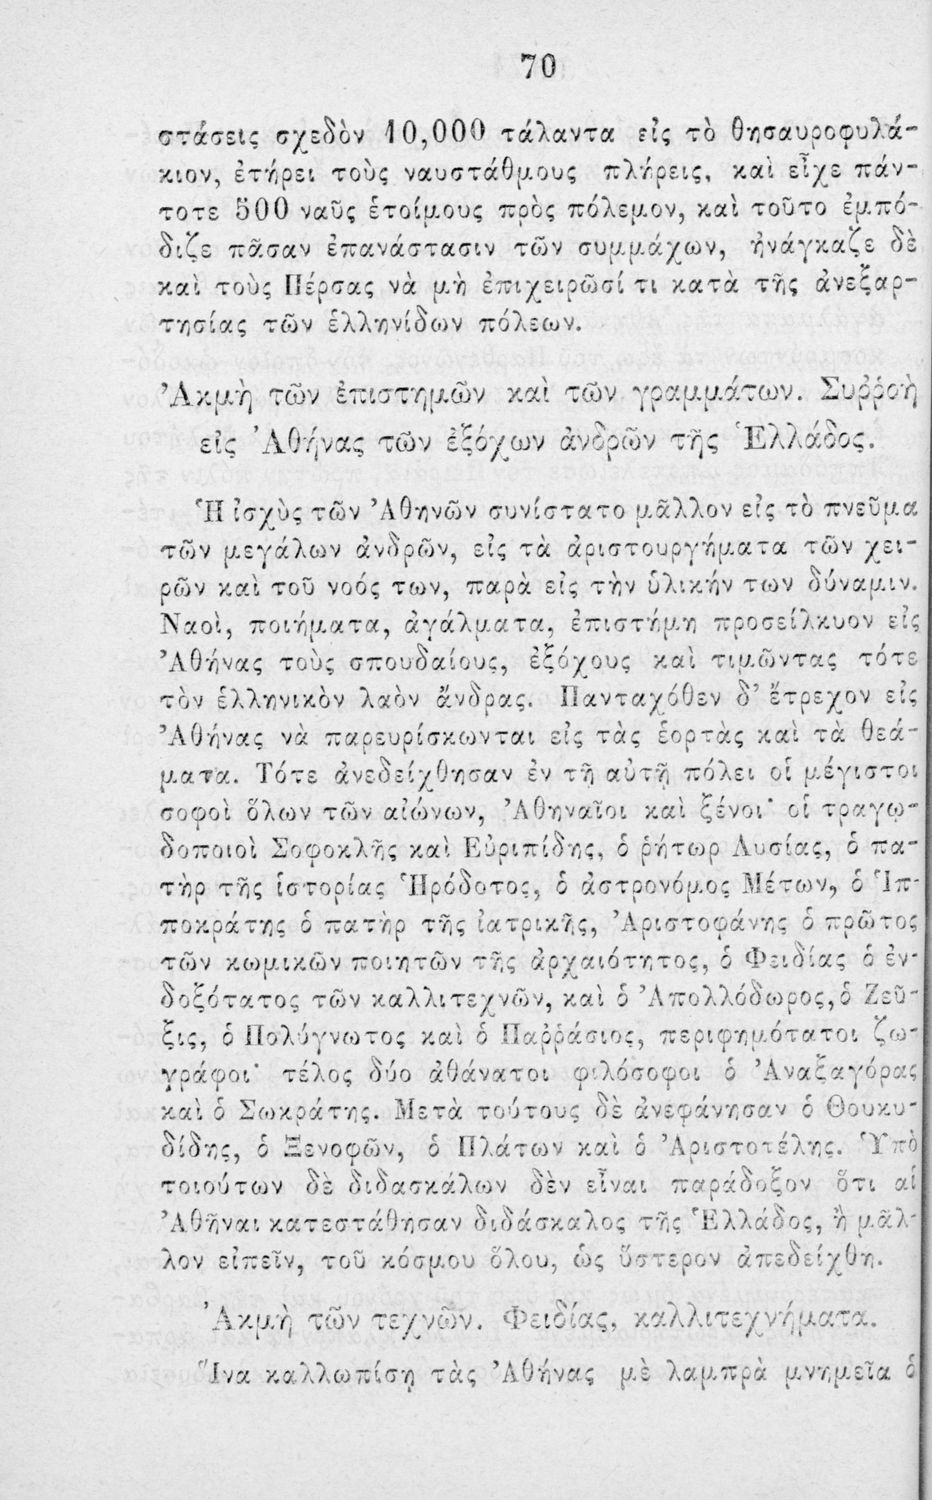 70
στάσεις σχεδὸν 10,000 τάλαντα εἰς τὸ θησαυροφυλά-
κιον, ἐτήρει τοὺς ναυστάθμους πλήρεις, καὶ εἶχε πάν-
τοτε 500 ναῦς ἑτοίμους πρὸς πόλεμον, καὶ τοῦτο ἐμπό-
διζε πᾶσαν ἐπανάστασιν τῶν συμμάχων, ἠνάγκαζε δὲ
καὶ τοὺς Πέρσας νὰ μὴ ἐπιχειρῶσί τι κατὰ τῆς ἀνεξαρ-
τησίας τῶν ἑλληνίδων πόλεων.
Ἀκμὴ τῶν ἐπιστημῶν καὶ τῶν γραμμάτων. Συῤῥοὴ
εἰς Ἀθήνας τῶν ἐξόχων ἀνδρῶν τῆς Ἑλλάδος.
Ἡ ἰσχὺς τῶν Ἀθηνῶν συνίστατο μᾶλλον εἰς τὸ πνεῦμα
τῶν μεγάλων ἀνδρῶν, εἰς τὰ ἀριστουργήματα τῶν χει-
ρῶν καὶ τοῦ νοός των, παρὰ εἰς τὴν ὑλικήν των δύναμιν.
Ναοὶ, ποιήματα, ἀγάλματα, ἐπιστήμη προσείλκυον εἰς
Ἀθήνας τοὺς σπουδαίους, ἐξόχους καὶ τιμῶντας τότε
τὸν ἑλληνικὸν λαὸν ἄνδρας. Πανταχόθεν δ' ἔτρεχον εἰς
Ἀθήνας νὰ παρευρίσκωνται εἰς τὰς ἑορτὰς καὶ τὰ θεά-
ματα. Τότε ἀνεδείχθησαν ἐν τῇ αὐτῇ πόλει οἱ μέγιστοι
σοφοὶ ὅλων τῶν αἰώνων, Ἀθηναῖοι καὶ ξένοι· οἱ τραγῳ-
δοποιοὶ Σοφοκλῆς καὶ Εὐριπίδης, ὁ ῥήτωρ Λυσίας, ὁ πα-
τὴρ τῆς ἱστορίας Ἡρόδοτος, ὁ ἀστρονόμος Μέτων, ὁ Ἱπ-
ποκράτης ὁ πατὴρ τῆς ἰατρικῆς, Ἀριστοφάνης ὁ πρῶτος
τῶν κωμικῶν ποιητῶν τῆς ἀρχαιότητος, ὁ Φειδίας ὁ ἐν-
δοξότατος τῶν καλλιτεχνῶν, καὶ ὁ Ἀπολλόδωρος, ὁ Ζεῦ-
ξις, ὁ Πολύγνωτος καὶ ὁ Παῤῥάσιος, περιφημότατοι ζω-
γράφοι· τέλος δύο ἀθάνατοι φιλόσοφοι ὁ Ἀναξαγόρας
καὶ ὁ Σωκράτης. Μετὰ τούτους δὲ ἀνεφάνησαν ὁ Θουκυ-
δίδης, ὁ Ξενοφῶν, ὁ Πλάτων καὶ ὁ Ἀριστοτέλης. Ὑπὸ
τοιούτων δὲ διδασκάλων δὲν εἶναι παράδοξον ὅτι αἱ
Ἀθῆναι κατεστάθησαν διδάσκαλος τῆς Ἑλλάδος, ἢ μᾶλ-
λον εἰπεῖν, τοῦ κόσμου ὅλου, ὡς ὕστερον ἀπεδείχθη.
Ἀκμὴ τῶν τεχνῶν. Φειδίας, καλλιτεχνήματα.
Ἵνα καλλωπίσῃ τὰς Ἀθήνας μὲ λαμπρὰ μνημεῖα ὁ